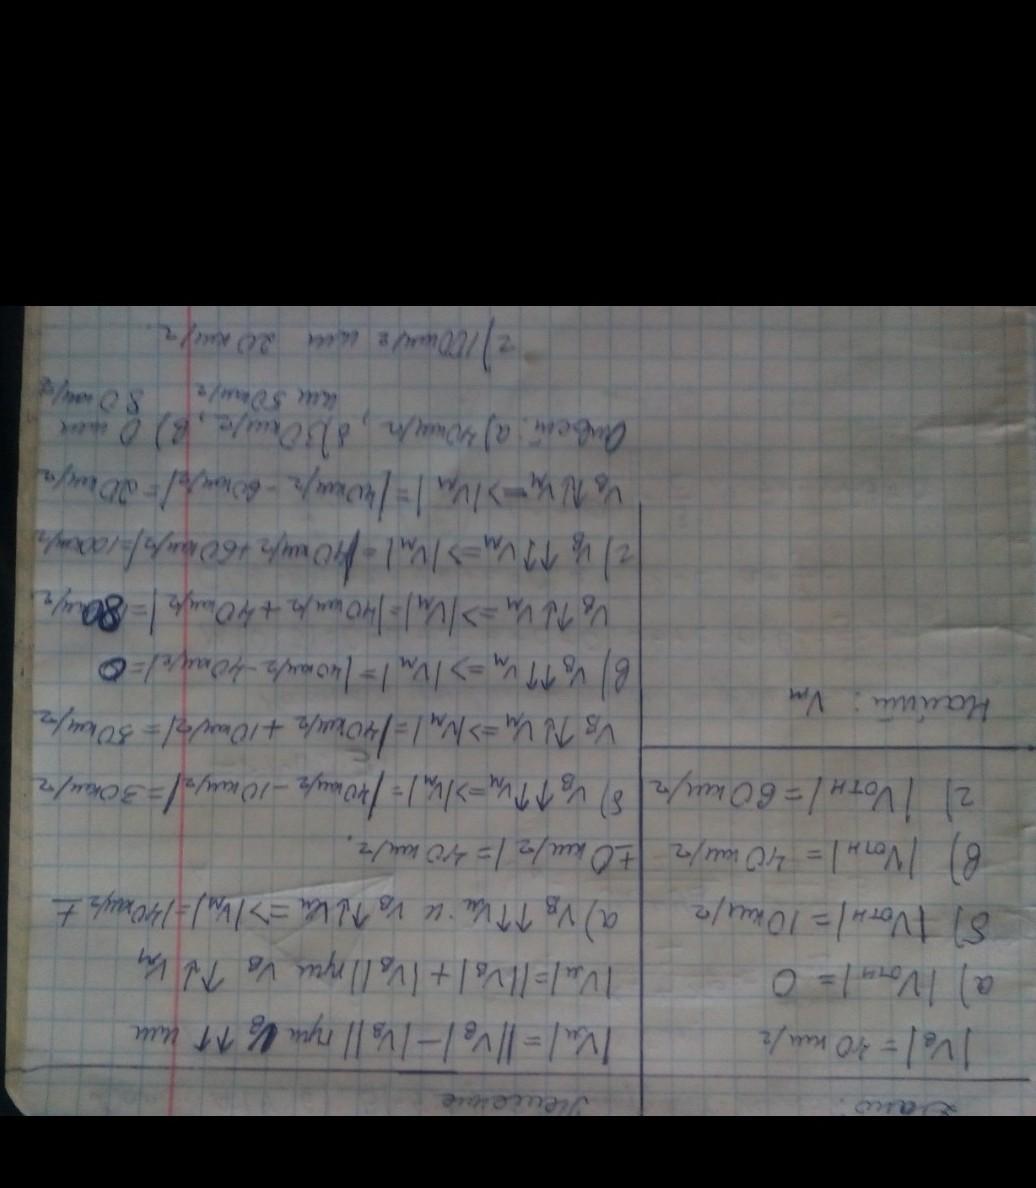 Дано:
|Vв| = 40 км/г
а) |Vотн| = 0
б) |Vотн| = 10 км/г
в) |Vотн| = 40 км/г
г) |Vотн| = 60 км/г
Найти: Vм
Решение
|Vм| = ||Vв| - |Vв|| при Vв ↑↑ или
|Vм| = ||Vв| + |Vв|| при Vв ↑↓ Vм
а) Vв ↑↑ Vм и Vв ↑↓ Vм => |Vм| = |40 км/г ±
±0 км/г| = 40 км/г.
б) Vв ↑↑ Vм => |Vм| = |40 км/г - 10 км/г| = 30 км/г
Vв ↑↓ Vм => |Vм| = |40 км/г + 10 км/г| = 50 км/г
в) Vв ↑↑ Vм => |Vм| = |40 км/г - 40 км/г| = 0
Vв ↑↓ Vм => |Vм| = |40 км/г + 40 км/г| = 80 км/г
г) Vв ↑↑ Vм => |Vм| = |40 км/г + 60 км/г| = 100 км/г
Vв ↑↓ Vм => |Vм| = |40 км/г - 60 км/г| = 20 км/г
Ответ: а) 40 км/г, б) 30 км/г, в) 0 или
или 50 км/г 80 км/г
г) 100 км/г или 20 км/г.